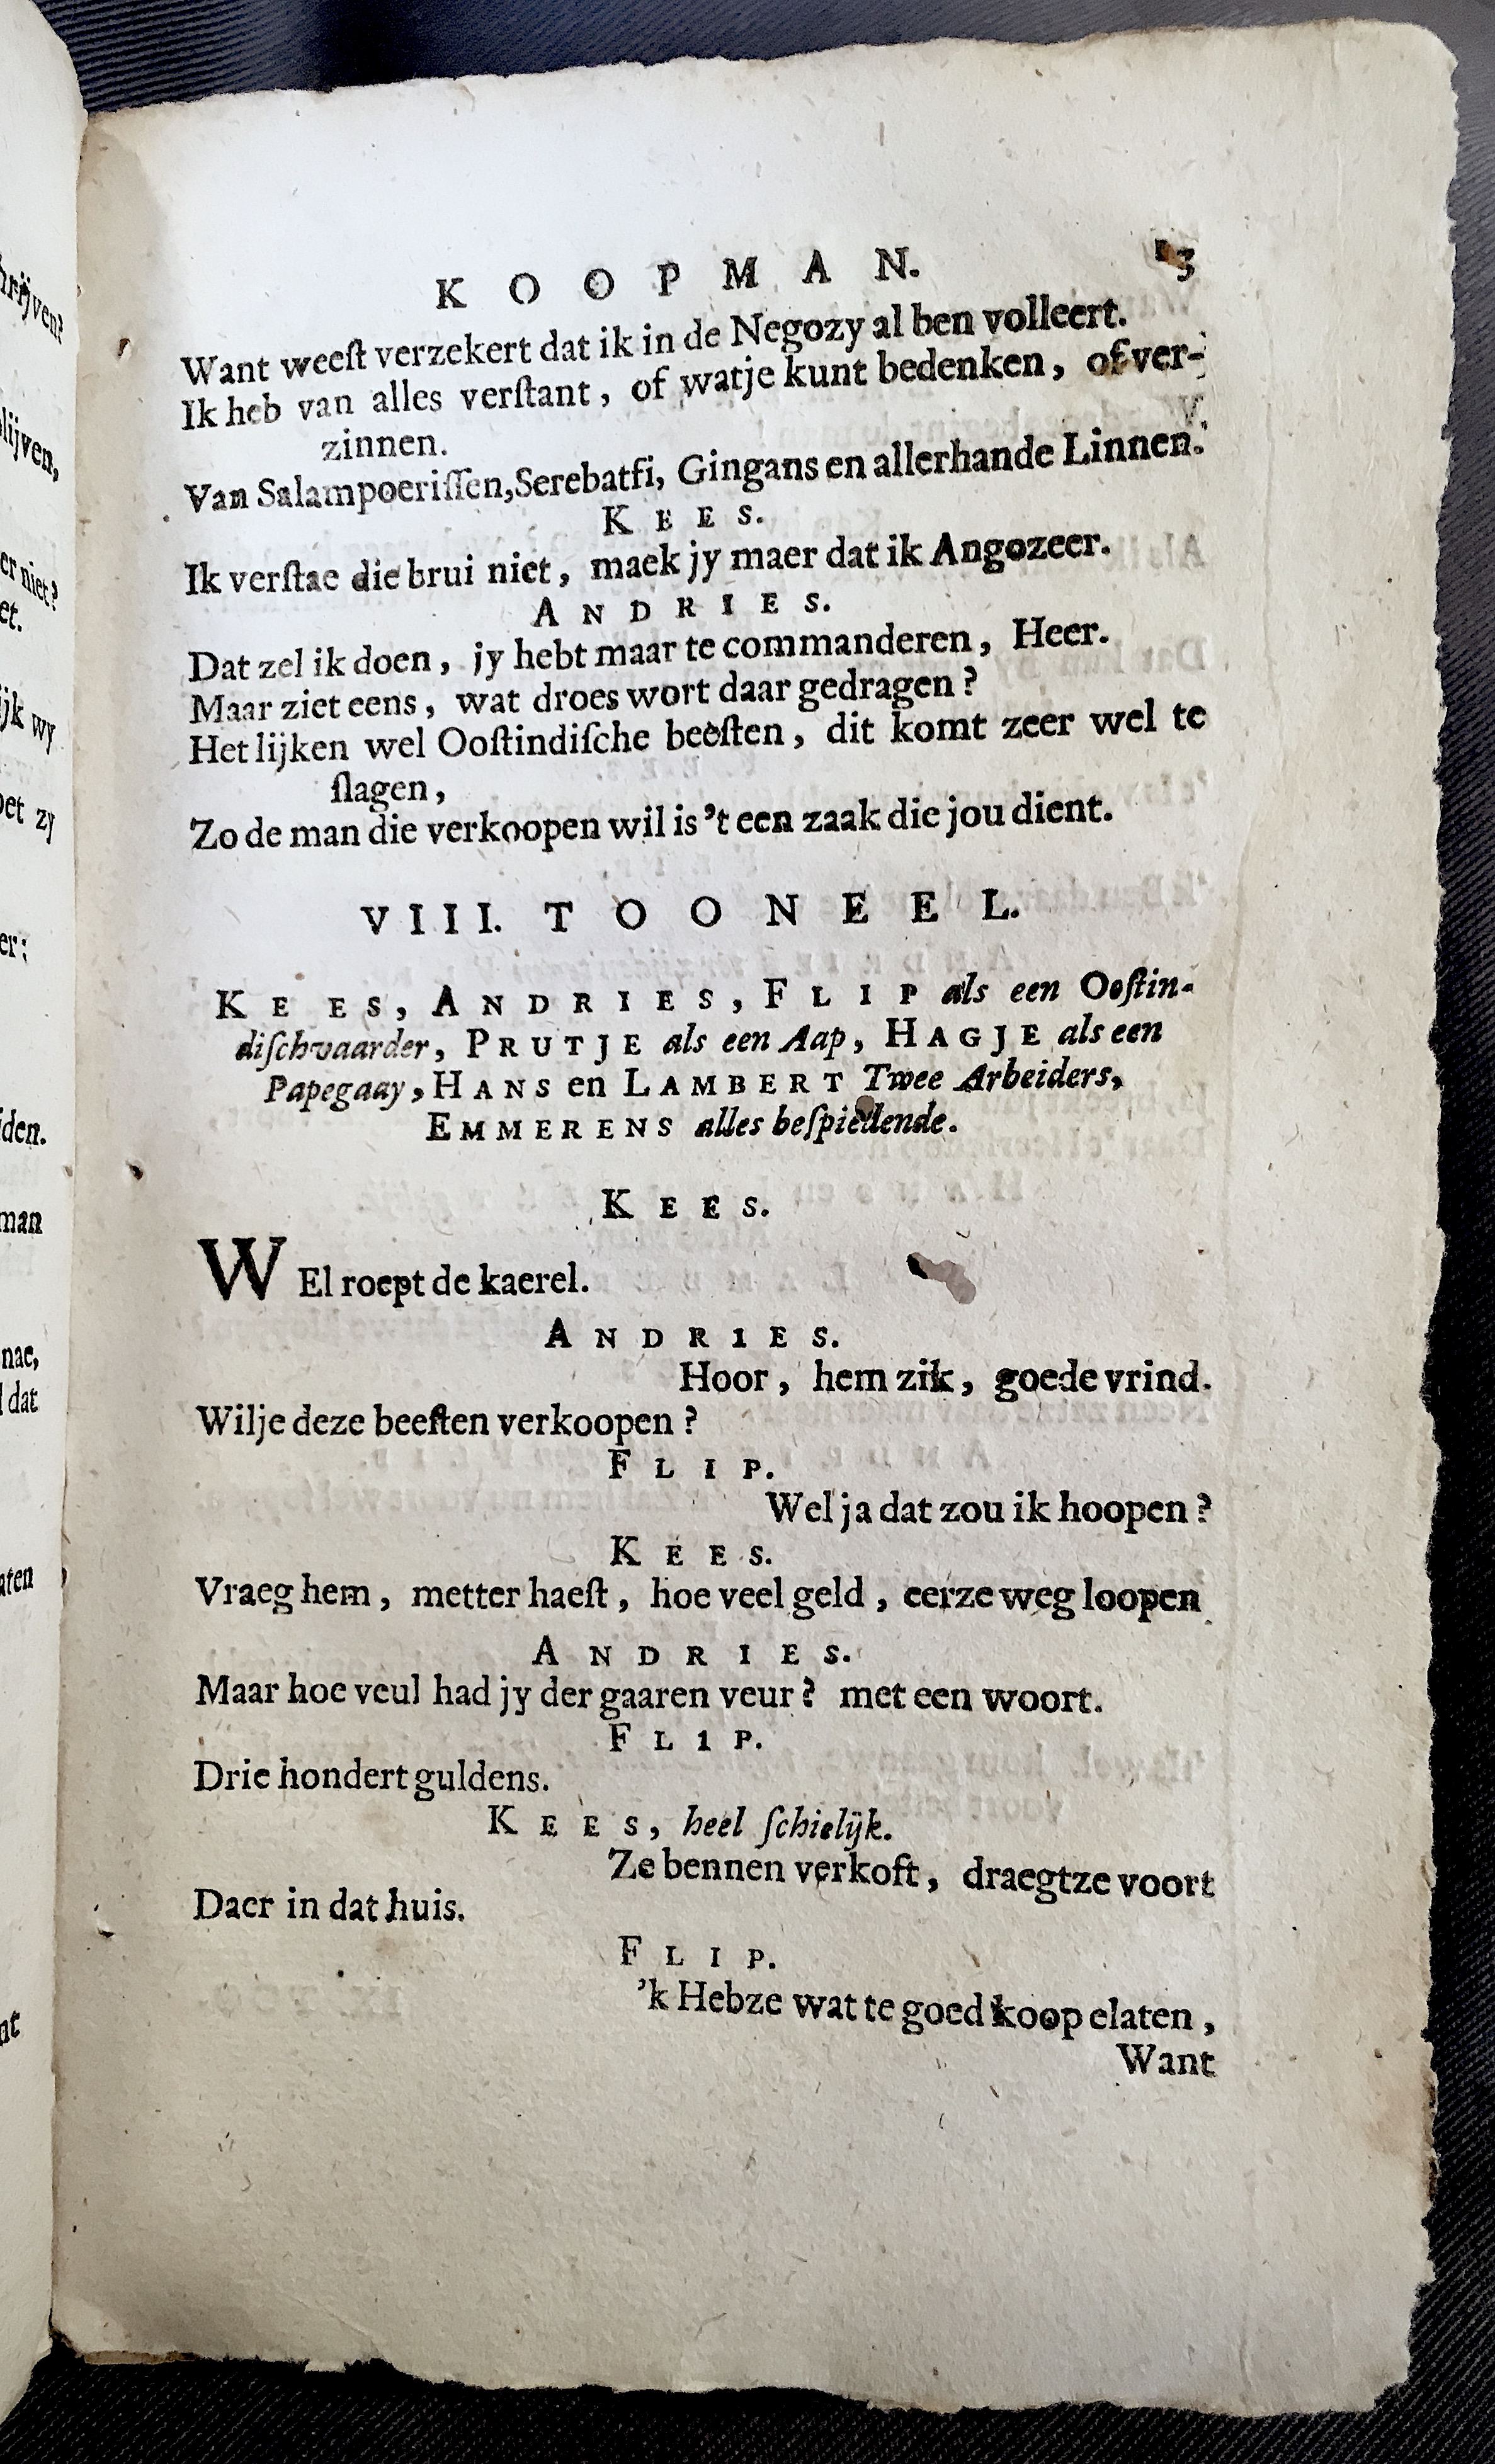 KOOPMAN. 13
Want weeſt verzekert dat ik in de Negozy al ben volleert.
Ik heb van alles verſtant, of watje kunt bedenken, of ver-
zinnen.
Van Salampoeriſſen, Serebatfi, Gingans en allerhande Linnen.
KEES.
Ik verſtae die brui niet, maek jy maer dat ik Angozeer.
ANDRIES.
Dat zel ik doen, jy hebt maar te commanderen, Heer.
Maar ziet eens, wat droes wort daar gedragen?
Het lijken wel Ooſtindiſche beeſten, dit komt zeer wel te
ſlagen,
Zo de man die verkoopen wil is 't een zaak die jou dient.
VIII. TOONEEL.
KEES, ANDRIES, FLIP als een Ooſtin-
diſchvaarder, PRUTJE als een Aap, HAGJE als een
Papegaay, HANS en LAMBERT Twee Arbeiders,
EMMERENS alles beſpiedende.
KEES.
WEl roept de kaerel.
ANDRIES.
Hoor, hem zik, goede vrind.
Wilje deze beeſten verkoopen?
FLIP.
Wel ja dat zou ik hoopen?
KEES.
Vraeg hem, metter haeſt, hoe veel geld, eerze weg loopen
ANDRIES.
Maar hoe veul had jy der gaaren veur? met een woort.
FLIP.
Drie hondert guldens.
KEES, heel ſchielijk.
Ze bennen verkoft, draegtze voort
Daer in dat huis.
FLIP.
'k Hebze wat te goed koop elaten,
Want
hrijven?
lijven,
er niet?
et.
ijk wy
oet zy
er:
iden.
man
nae,
dat
aten
nt